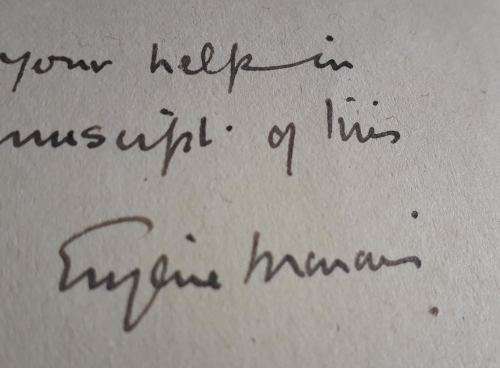 your help in
nuscript. of this
Eugène Marais